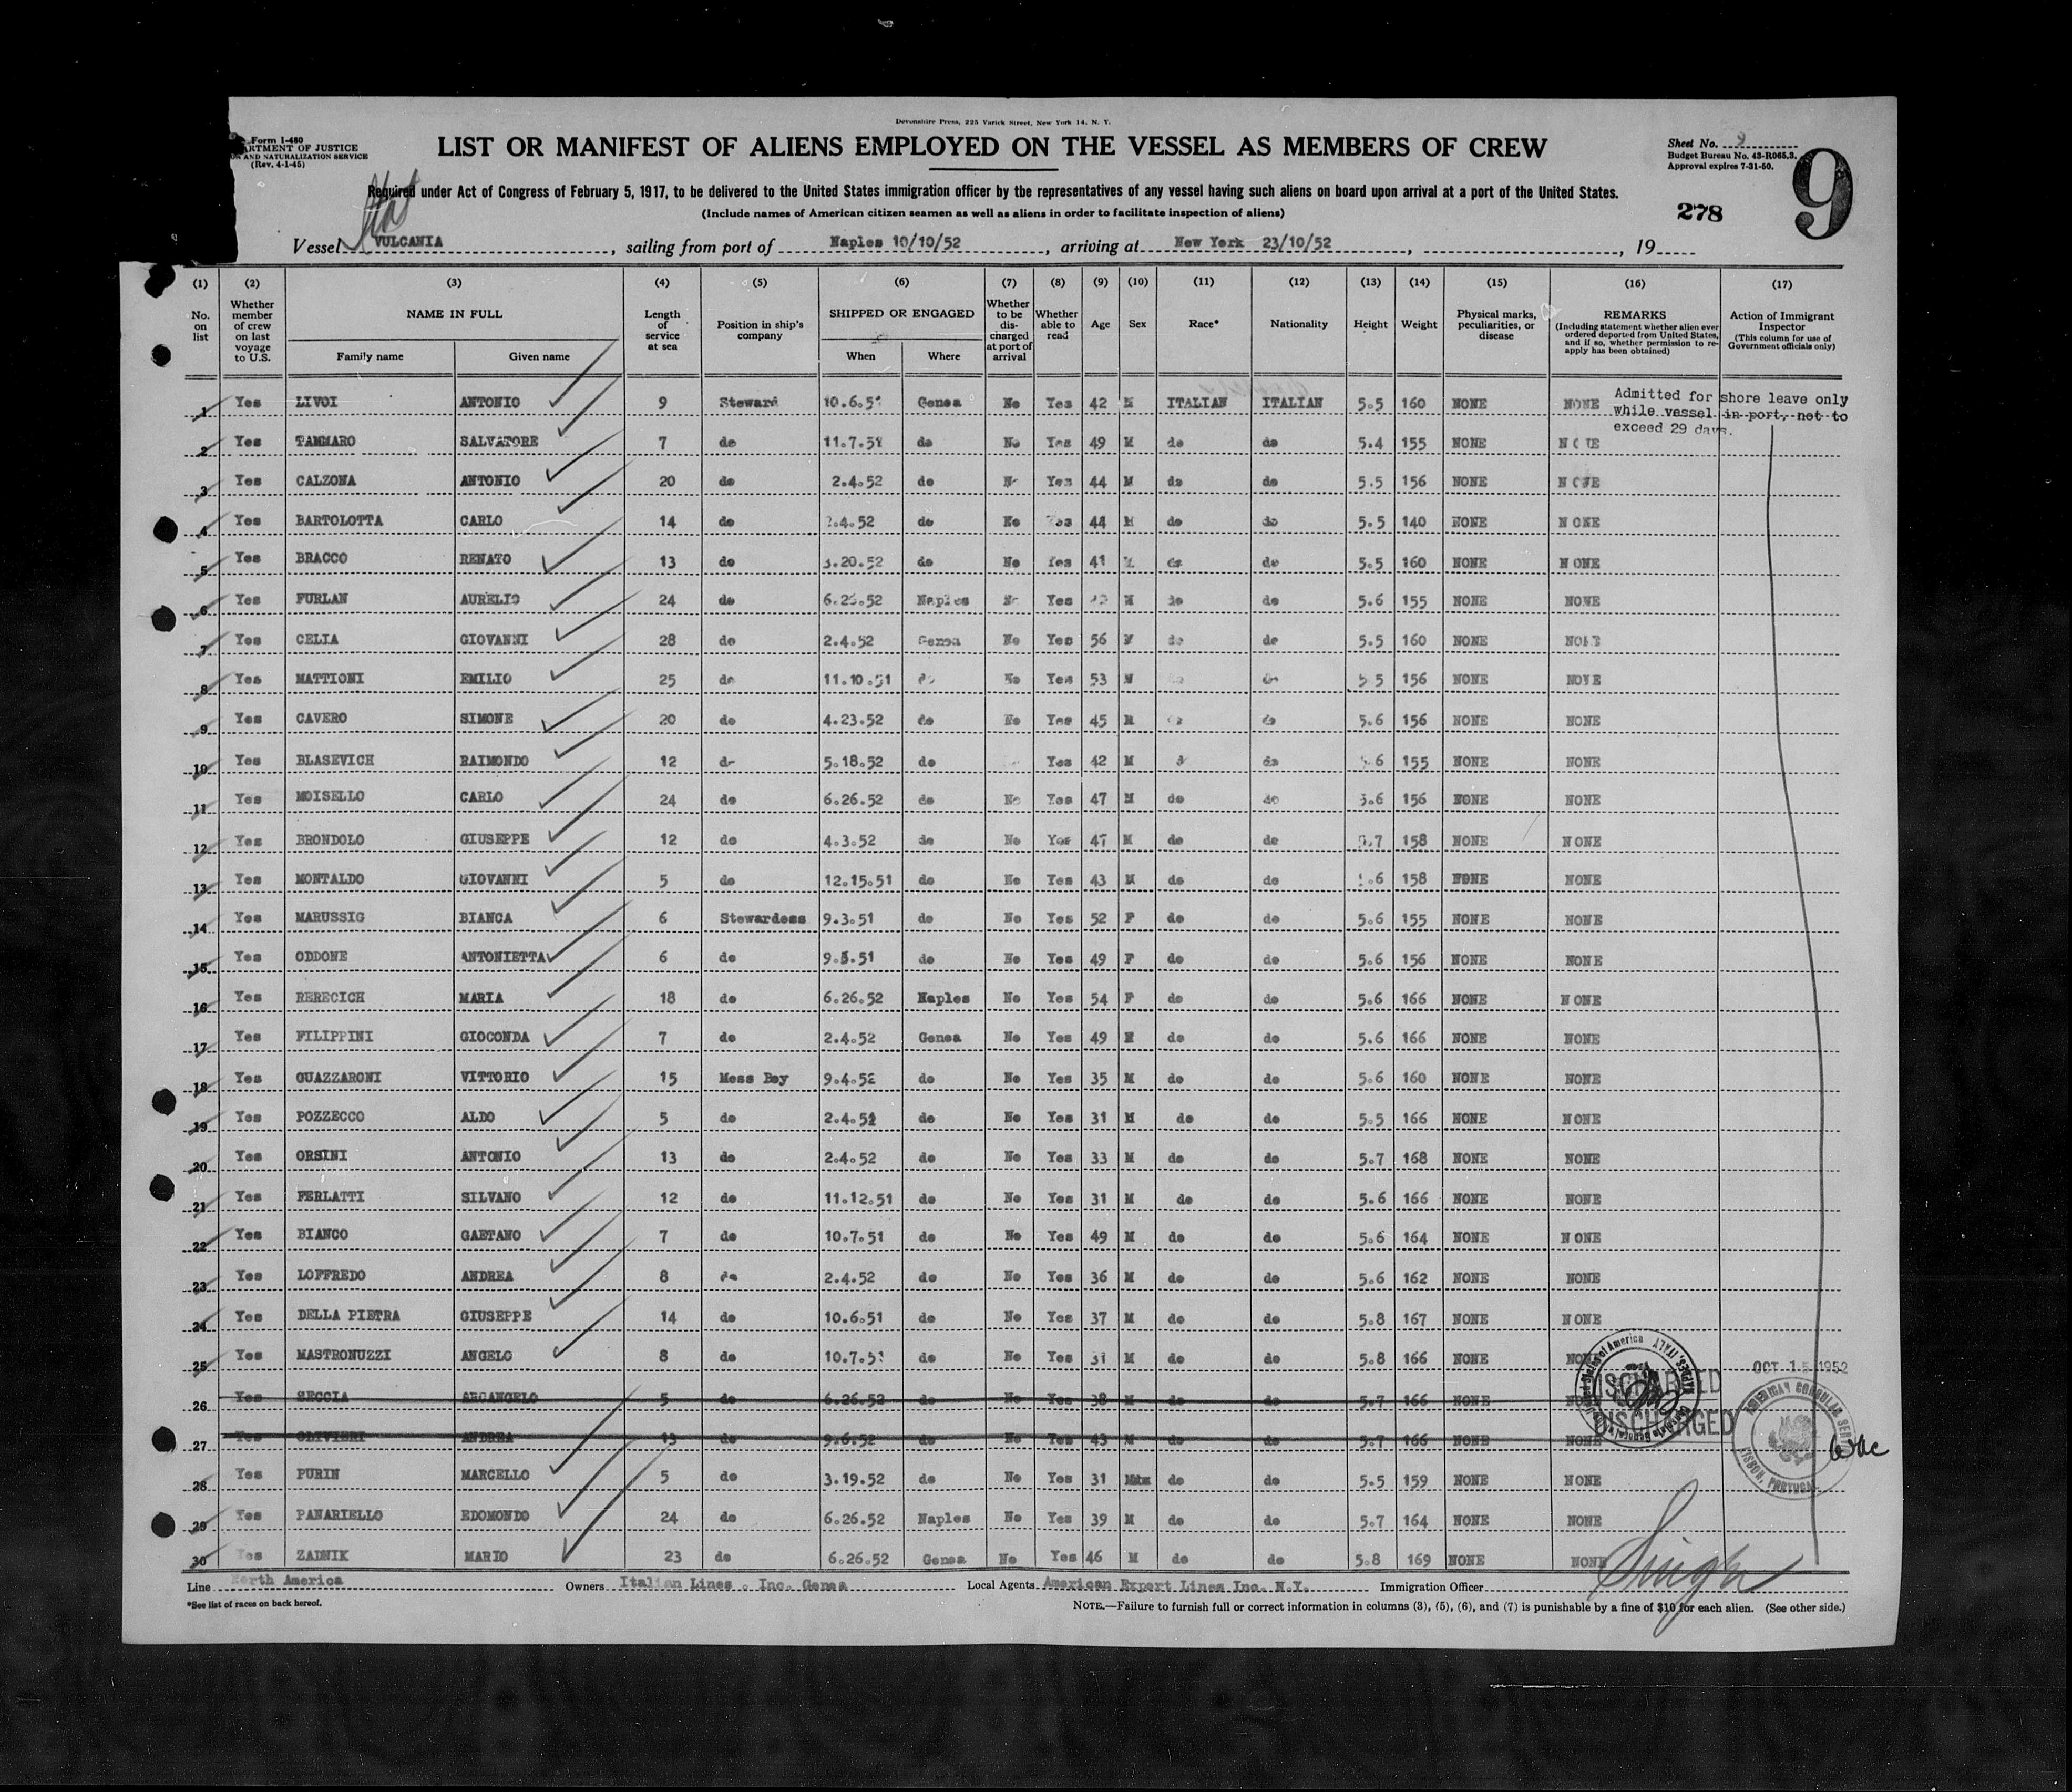 Devonshire Press, 225 Varick Street, New York 14, N. Y.
Form I-480
ARTMENT OF JUSTICE
AND NATURALIZATION SERVICE
(Rev. 4-1-45)
LIST OR MANIFEST OF ALIENS EMPLOYED ON THE VESSEL AS MEMBERS OF CREW
Sheet No. 9
Budget Bureau No. 43-R065.3.
Approval expires 7-31-50.
9
Required under Act of Congress of February 5, 1917, to be delivered to the United States immigration officer by the representatives of any vessel having such aliens on board upon arrival at a port of the United States.
(Include names of American citizen seamen as well as aliens in order to facilitate inspection of aliens)
278
Vessel VULCANIA, sailing from port of Naples 10/10/52, arriving at New York 23/10/52, , 19
(1) (2) (3) (4) (5) (6) (7) (8) (9) (10) (11) (12) (13) (14) (15) (16) (17)
No. on list
Whether member of crew on last voyage to U.S.
NAME IN FULL
Family name Given name
Length of service at sea
Position in ship's company
SHIPPED OR ENGAGED
When Where
Whether to be discharged at port of arrival
Whether able to read
Age
Sex
Race*
Nationality
Height
Weight
Physical marks, peculiarities, or disease
REMARKS
(Including statement whether alien ever ordered deported from United States, and if so, whether permission to reapply has been obtained)
Action of Immigrant Inspector
(This column for use of Government officials only)
Admitted for shore leave only
while vessel in port, not to
exceed 29 days.
1 Yes LIVOI ANTONIO 9 Steward No Yes 42 M ITALIAN ITALIAN 5.5 160 NONE NONE
2 Yes TAMMARO SALVATORE 7 do do No Yes 49 M do do 5.4 155 NONE
3 Yes CALZONA ANTONIO 20 do 2.4.52 do Yes 44 M do do 5.5 156 NONE
4 Yes BARTOLOTTA CARLO 14 do do No Yes 44 M do do 5.5 140 NONE NONE
5 Yes BRACCO RENATO 13 do 3.20.52 do No Yes 41 do 5.5 160 NONE NONE
6 Yes FURLAN AURELIO 24 do Naples Yes M do do 5.6 155 NONE NONE
7 Yes CELIA GIOVANNI 28 do 2.4.52 Genoa No Yes 56 do do 5.5 160 NONE NONE
8 Yes MATTIONI EMILIO 25 do 11.10.51 No Yes 53 M 5.5 156 NONE NONE
9 Yes CAVERO SIMONE 20 do 4.23.52 do No Yes 45 M do 5.6 156 NONE NONE
10 Yes BLASEVICH RAIMONDO 12 do 5.18.52 do Yes 42 M do 155 NONE NONE
11 Yes MOISELLO CARLO 24 do 6.26.52 do No Yes 47 M do do 156 NONE NONE
12 Yes BRONDOLO GIUSEPPE 12 do 4.3.52 do No Yes 47 M do do 158 NONE NONE
13 Yes MONTALDO GIOVANNI 5 do 12.15.51 do No Yes 43 M do do 158 NONE NONE
14 Yes MARUSSIG BIANCA 6 Stewardess 9.3.51 do No Yes 52 F do do 5.6 155 NONE NONE
15 Yes ODDONE ANTONIETTA 6 do do No Yes 49 F do do 5.6 156 NONE NONE
16 Yes RERECICH MARIA 18 do 6.26.52 Naples No Yes 54 F do do 5.6 166 NONE NONE
17 Yes FILIPPINI GIOCONDA 7 do 2.4.52 Genoa No Yes 49 do do 5.6 166 NONE NONE
18 Yes GUAZZARONI VITTORIO 15 Mess Boy 9.4.52 do No Yes 35 M do do 5.6 160 NONE NONE
19 Yes POZZECCO ALDO 5 do do No Yes 31 M do do 5.5 166 NONE NONE
20 Yes ORSINI ANTONIO 13 do 2.4.52 do No Yes 33 M do do 5.7 168 NONE NONE
21 Yes FERLATTI SILVANO 12 do 11.12.51 do No Yes 31 M do do 5.6 166 NONE NONE
22 Yes BIANCO GAETANO 7 do 10.7.51 do No Yes 49 M do do 5.6 164 NONE NONE
23 Yes LOFFREDO ANDREA 8 do 2.4.52 do No Yes 36 M do do 5.6 162 NONE NONE
24 Yes DELLA PIETRA GIUSEPPE 14 do 10.6.51 do No Yes 37 M do do 5.8 167 NONE NONE
25 Yes MASTRONUZZI ANGELO 8 do do No Yes 31 M do do 5.8 166 NONE NONE OCT 15 1952
26 Yes SECCIA ARCANGELO 5 do 6.26.52 do No Yes 38 M do do 5.7 166 NONE DISCHARGED
27 Yes OLIVIERI ANDREA 13 do 9.6.52 do No Yes 43 M do do 5.7 166 NONE NONE DISCHARGED
28 Yes PURIN MARCELLO 5 do 3.19.52 do No Yes 31 do do 5.5 159 NONE NONE
29 Yes PANARIELLO EDOMONDO 24 do 6.26.52 Naples No Yes 39 M do do 5.7 164 NONE NONE
30 Yes ZADNIK MARIO 23 do 6.26.52 Genoa No Yes 46 M do do 5.8 169 NONE NONE
AMERICAN CONSULAR
LISBON, PORTUGAL
NAPLES, ITALY
Line North America Owners Italian Lines . Inc. Genoa Local Agents American Export Lines Inc. N.Y. Immigration Officer Singh
*See list of races on back hereof.
NOTE.—Failure to furnish full or correct information in columns (3), (5), (6), and (7) is punishable by a fine of $10 for each alien. (See other side.)